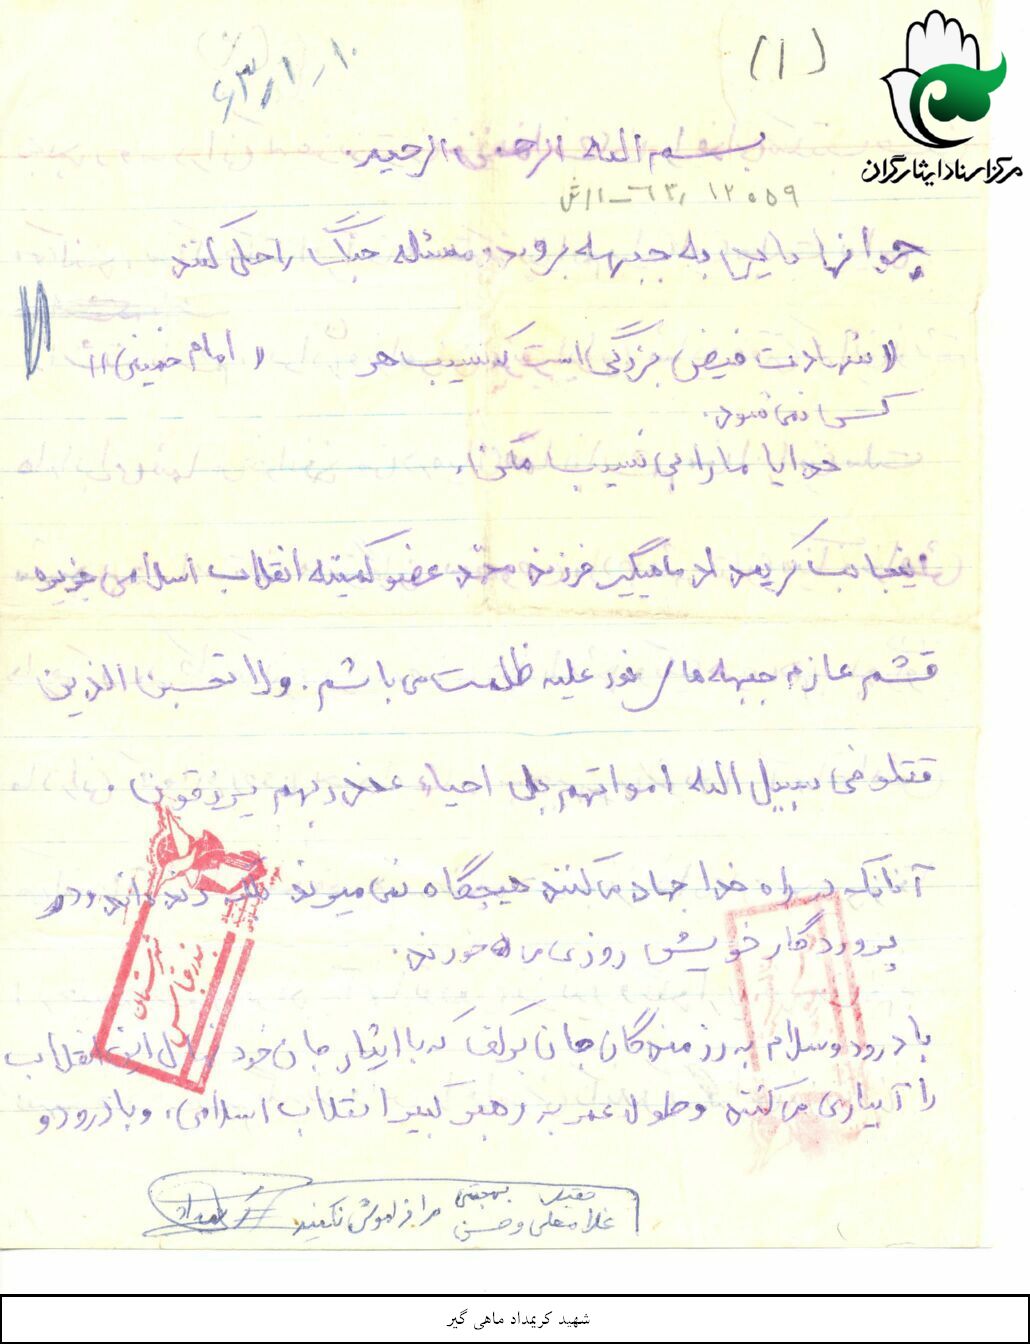 (۱)
۶۳/۱/۱۰
مرکز اسناد ایثارگران
بسم الله الرحمن الرحیم.
۱۲۰۵۹
جوانها بایس به جبهه بروند و مسئله جنگ را حل کنند
« شهادت فیض بزرگی است که نسیب هر « امام خمینی »
کسی نمی شود.
خدایا ما را بی نسیب مگن
اینجانب کریمداد ماهیگیر فرزند محمد عضو کمیته انقلاب اسلامی جزیره
قشم عازم جبهه های نور علیه ظلمت می باشم. ولا تحسبن الذین
قتلو فی سبیل الله امواتهم بل احیاء عند ربهم یرزقون
آنانکه در راه خدا جهاد می کنند هیچگاه نمی میرند بلکه زنده اند و در
پروردگار خویش روزی می خورند.
با درود و سلام به رزمندگان جان برکف که با ایثار جان خود نهال این انقلاب
را آبیاری می کنند و طول عمر به رهبر کبیر انقلاب اسلامی، و با درود و
شهرستان
بندرعباس
غلامعلی و حسن مرا فراموش نکنید کریمداد
شهید کریمداد ماهی گیر